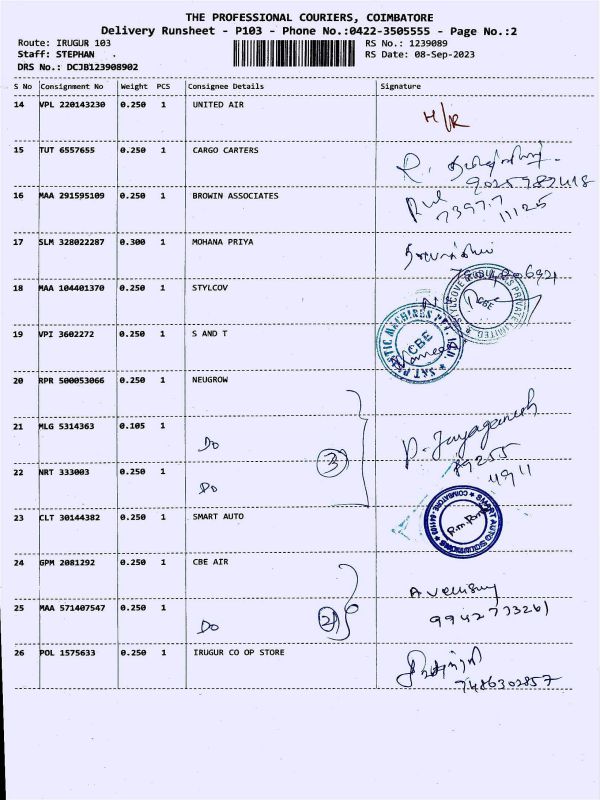 THE PROFESSIONAL COURIERS, COIMBATORE
Delivery Runsheet - P103 - Phone No.:0422-3505555 - Page No.:2
Route: IRUGUR 103 RS No.: 1239089
Staff: STEPHAN RS Date: 08-Sep-2023
DRS No.: DCJB123908902
S No Consignment No Weight PCS Consignee Details Signature
14 VPL 220143230 0.250 1 UNITED AIR
H/R
15 TUT 6557655 0.250 1 CARGO CARTERS
16 MAA 291595109 0.250 1 BROWIN ASSOCIATES
73977 11125
17 SLM 328022287 0.300 1 MOHANA PRIYA
18 MAA 104401370 0.250 1 STYLCOV
19 VPI 3602272 0.250 1 S AND T
CBE
20 RPR 500053066 0.250 1 NEUGROW
21 MLG 5314363 0.105 1 Do
3
P. Jayaganesh
89255
4911
22 NRT 333003 0.250 1 Do
23 CLT 30144382 0.250 1 SMART AUTO
SMART AUTO SOLUTIONS
24 GPM 2081292 0.250 1 CBE AIR
25 MAA 571407547 0.250 1 Do
2
9942733261
26 POL 1575633 0.250 1 IRUGUR CO OP STORE
7486302857